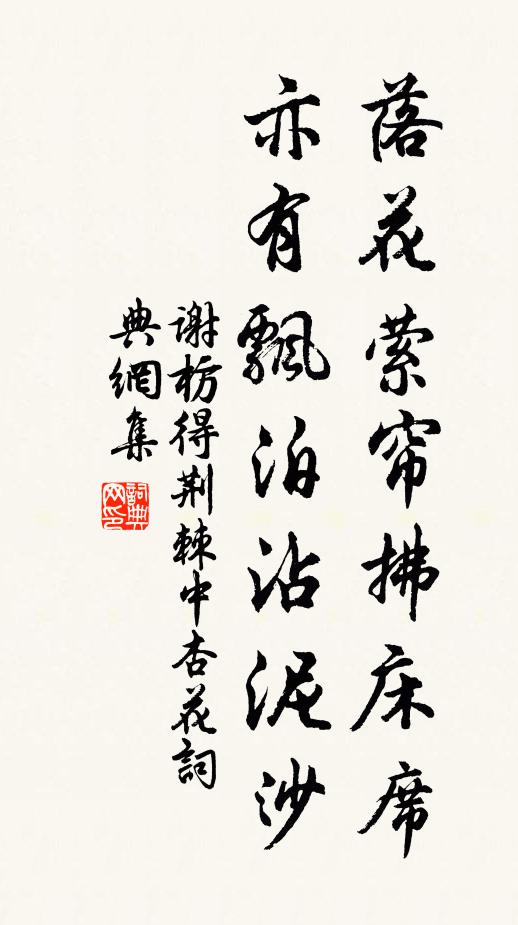 落花萦帘拂床席
亦有飘泊沾泥沙
谢枋得荆棘中杏花詞
典網集
詞典
网印